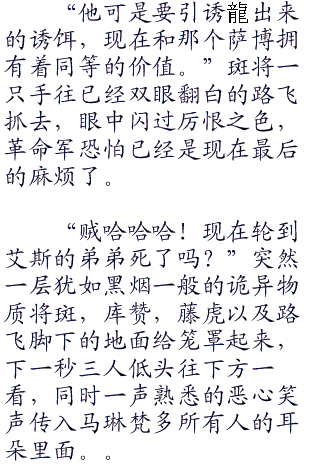 “他可是要引诱龍出来
的诱饵，现在和那个萨博拥
有着同等的价值。”斑将一
只手往已经双眼翻白的路飞
抓去，眼中闪过厉恨之色，
革命军恐怕已经是现在最后
的麻烦了。
“贼哈哈哈！现在轮到
艾斯的弟弟死了吗？”突然
一层犹如黑烟一般的诡异物
质将斑，库赞，藤虎以及路
飞脚下的地面给笼罩起来，
下一秒三人低头往下方一
看，同时一声熟悉的恶心笑
声传入马琳梵多所有人的耳
朵里面。。